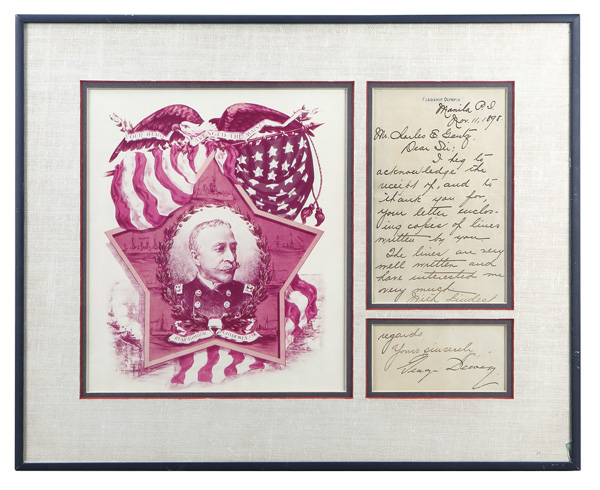 OUR HERO
FLAGSHIP OLYMPIA
Manila P.I.
Nov. 11, 1898.
Mr. Charles E Gantz
Dear Sir:
I beg to
acknowledge the
receipt of, and to
thank you for,
your letter enclos-
ing copies of lines
written by you
The lines are very
well written and
have interested me
very much
With kindest
regards
Yours sincerely,
George Dewey